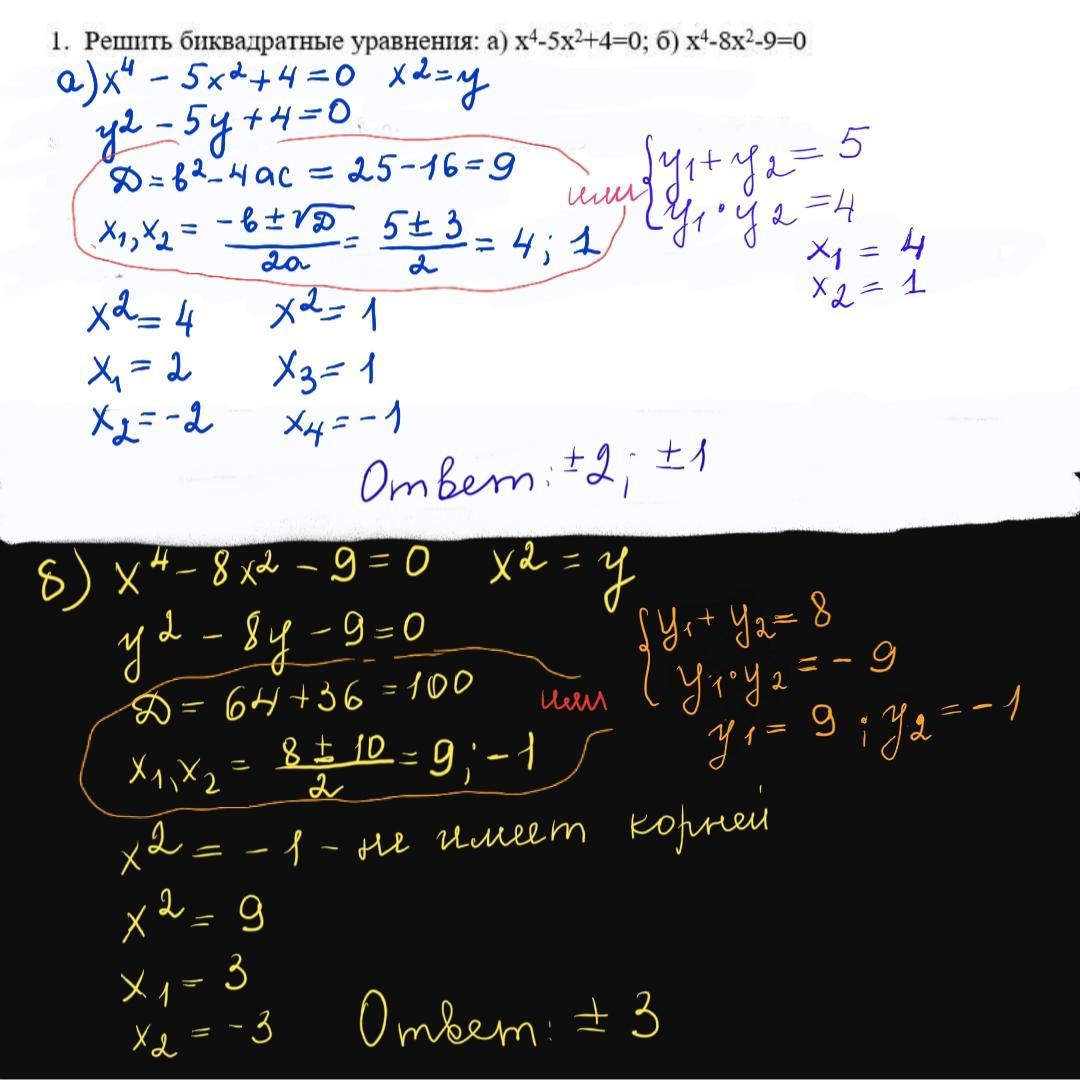 1. Решить биквадратные уравнения: а) x⁴-5x²+4=0; б) x⁴-8x²-9=0
а) x⁴ - 5x² + 4 = 0 x² = y
y² - 5y + 4 = 0
D = b² - 4ac = 25 - 16 = 9
x₁, x₂ = (-b ± √D)/2a = (5 ± 3)/2 = 4; 1
или
{y₁ + y₂ = 5
{y₁ · y₂ = 4
x₁ = 4
x₂ = 1
x² = 4 x² = 1
x₁ = 2 x₃ = 1
x₂ = -2 x₄ = -1
Ответ: ±2; ±1
б) x⁴ - 8x² - 9 = 0 x² = y
y² - 8y - 9 = 0
D = 64 + 36 = 100
x₁, x₂ = (8 ± 10)/2 = 9; -1
или
{y₁ + y₂ = 8
{y₁ · y₂ = -9
y₁ = 9; y₂ = -1
x² = -1 - не имеет корней
x² = 9
x₁ = 3
x₂ = -3
Ответ: ± 3